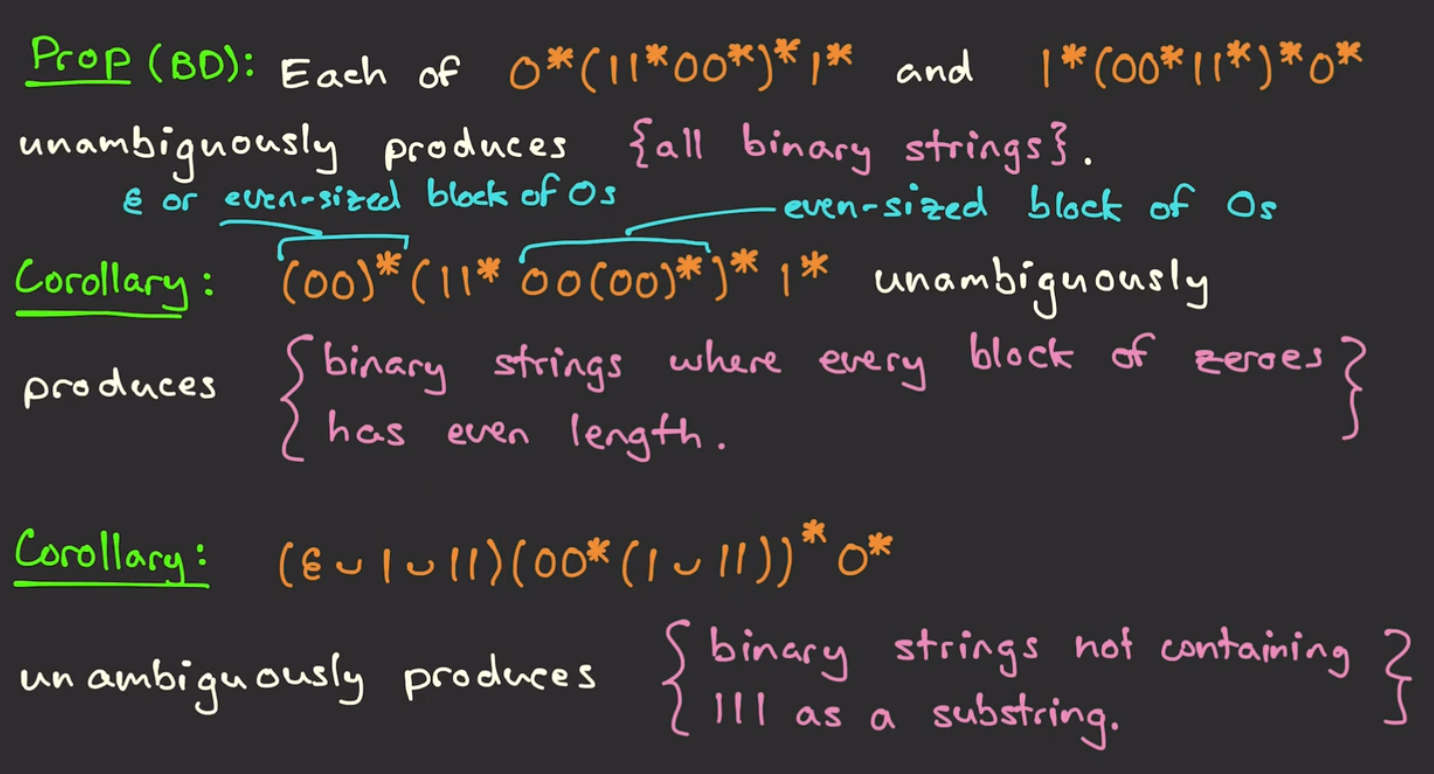 Prop (BD): Each of 0*(11*00*)*1* and 1*(00*11*)*0*
unambiguously produces {all binary strings}.
ε or even-sized block of 0s even-sized block of 0s
Corollary: (00)*(11* 00(00)*)* 1* unambiguously
produces {binary strings where every block of zeroes}
has even length.
Corollary: (ε ∪ 1 ∪ 11)(00*(1 ∪ 11))*0*
unambiguously produces {binary strings not containing}
111 as a substring.